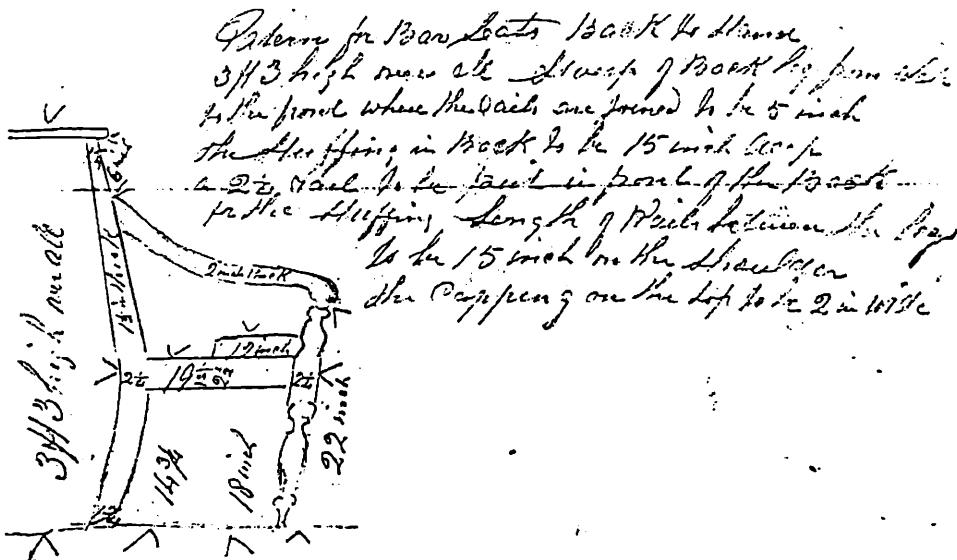 Patern for Bar Seats Back to Stand
3ff3 high over all Sweep of Back leg from
to the front where the Rails are joined to be 5 inch
the Stuffing in Back to be 15 inch deep
a 2½ rail to be put in front of the Back
for the Stuffing Length of Rails between the legs
to be 15 inch on the Shoulder
the Capping on the top to be 2 in wide
2 inch thick
1½ in thick
3ff3 high overall
12 inch
2½
19
2½
22 inch
14¾
18 inch